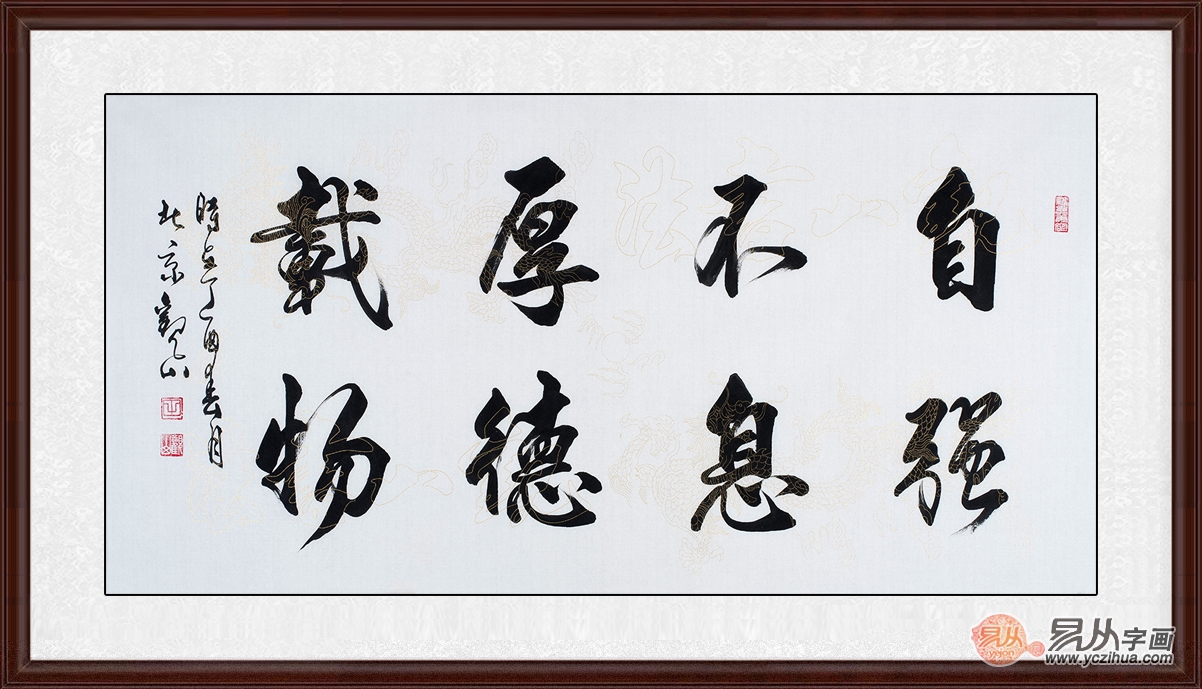 自强
不息
厚德
載物
時在丁酉春月
北京觀山
易从
易从字画
www.yczihua.com